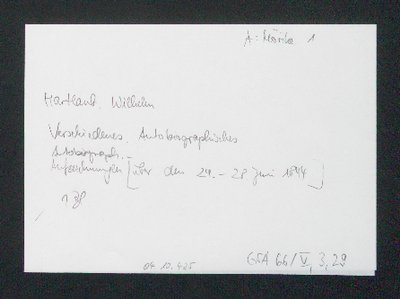 A: Mörike 1
Hartlaub, Wilhelm
Verschiedenes. Autobiographisches
Autobiograph.
Aufzeichnungen [über den 24. - 28 Juni 1844]
1 Bl
GSA 66/V, 3, 29